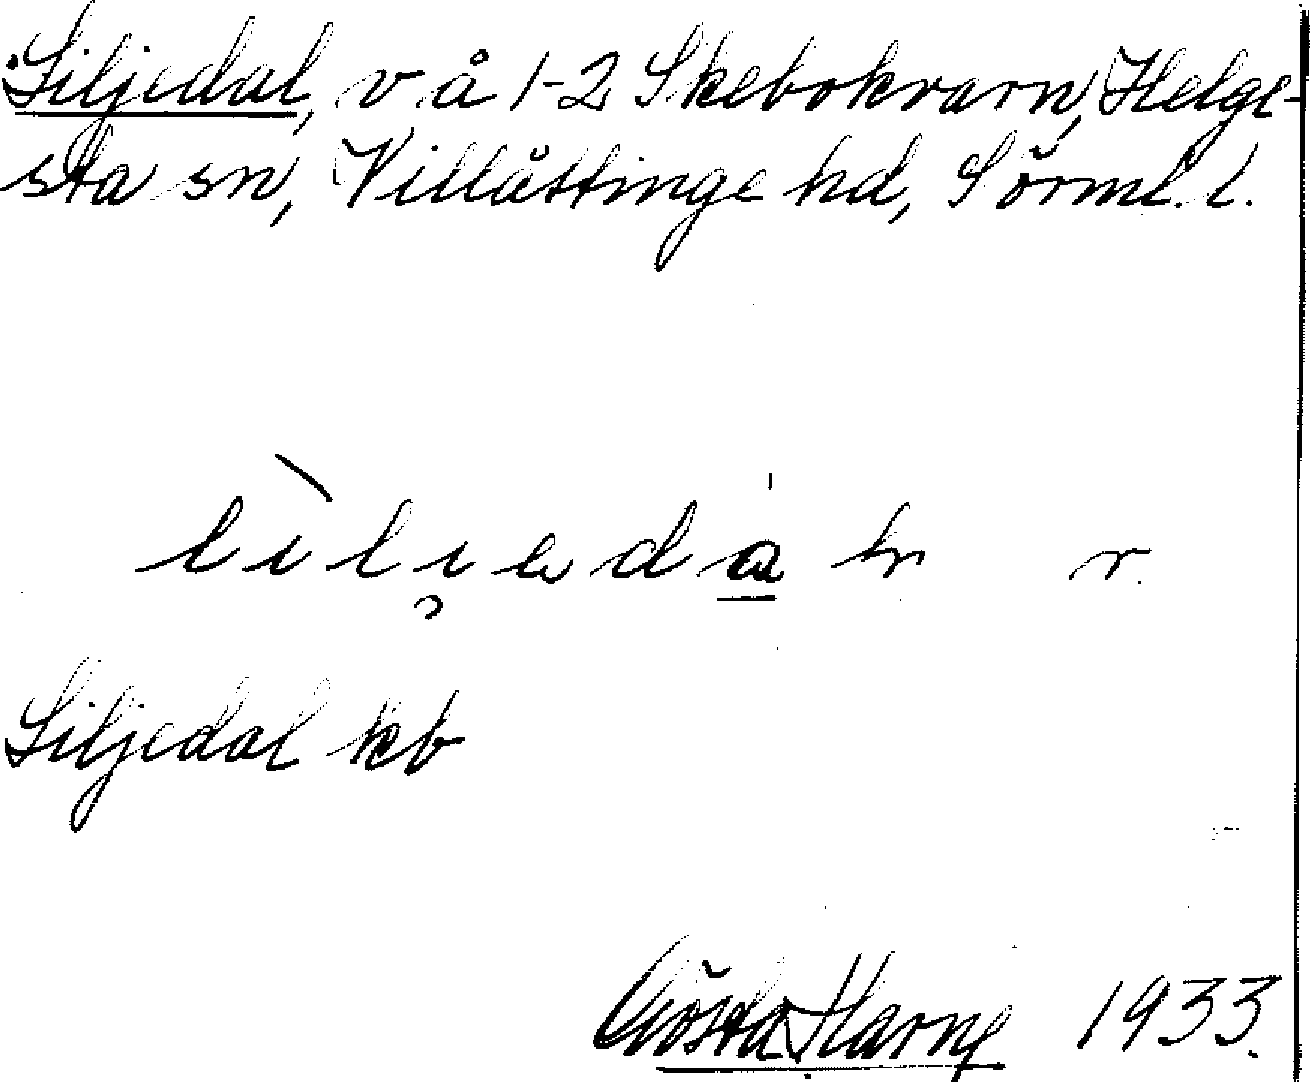 Liljedal, v å 1-2 Skebokvarn, Helge-
sta sn, Villåttinge hd, Sörml. l.
r.
Liljedal kb
Gösta Harne 1933.